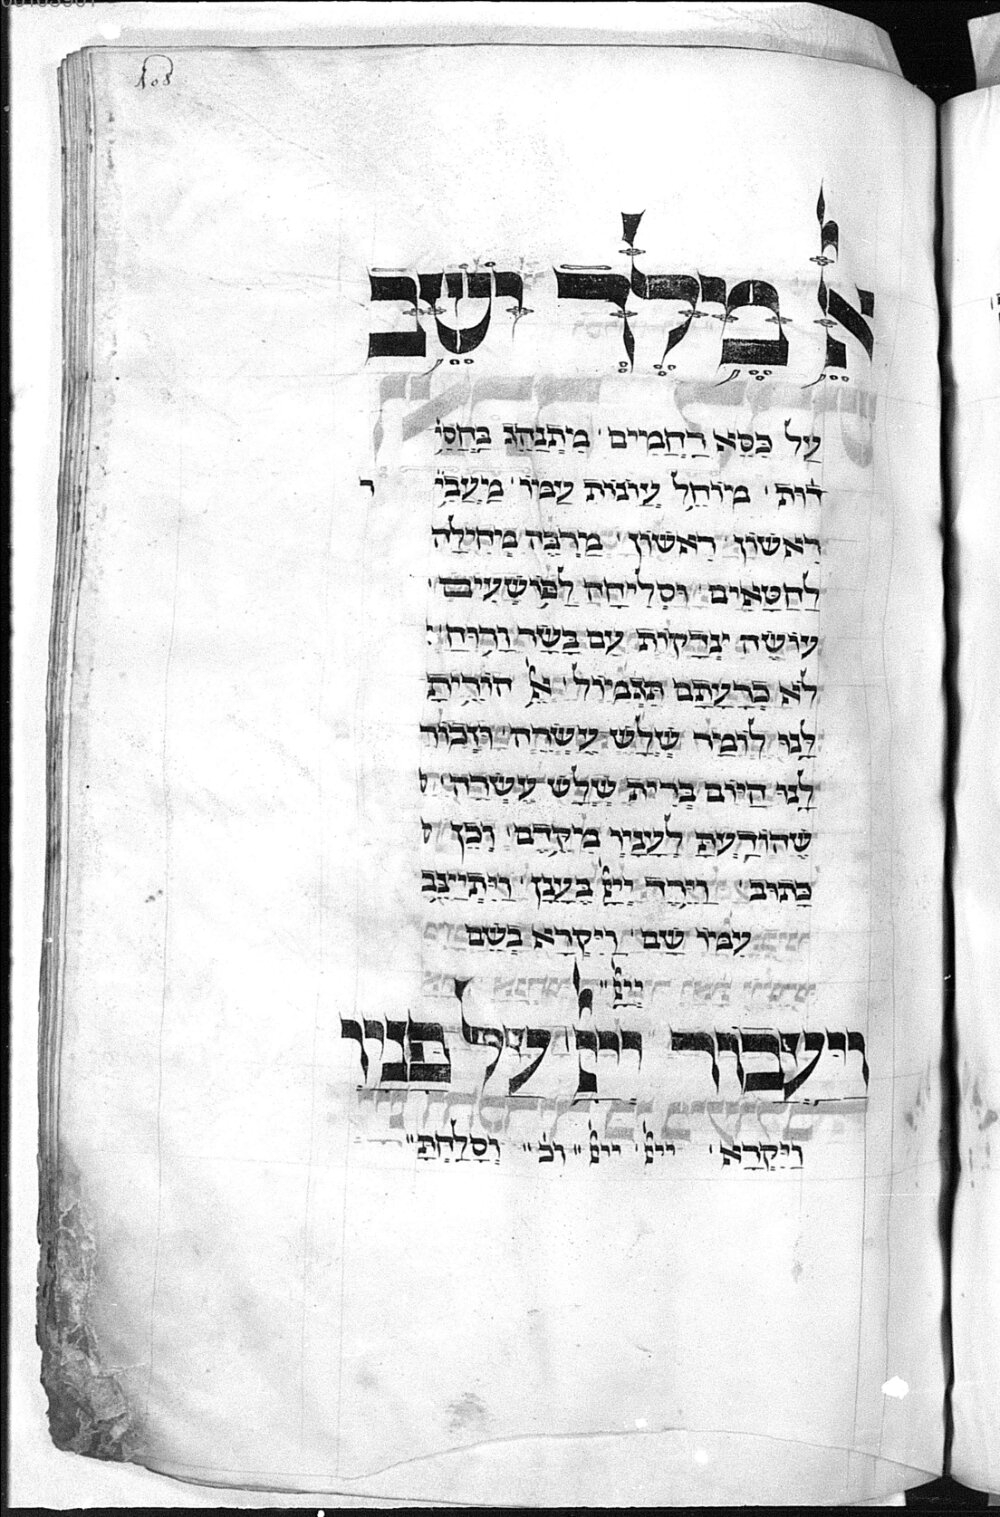 אל מלך יושב
על כסא רחמים מתנהג בחסי
דות מוחל עונות עמו מעביר
ראשון ראשון מרבה מחילה
לחטאים וסליחה לפושעים
עושה צדקות עם בשר ורוח
לא כרעתם תגמול אל הורית
לנו לומר שלש עשרה וזכור
לנו היום ברית שלש עשרה
שהודעת לעניו מקדם וכן
כתוב וירד ייי בענן ויתייצב
עמו שם ויקרא בשם
ייי
ויעבור ייי על פניו
ויקרא ייי ייי וכ׳ וסלחת